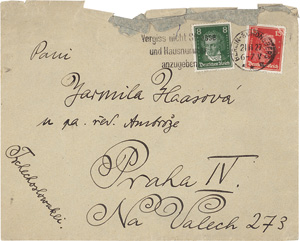 Vergiss nicht Straße
und Hausnummer
anzugeben
8 8
Deutsches Reich
15
Paní
Jarmila Haasová
u pa. red. Ambrože
Praha IV.
Na Valech 273
Tschechoslowakei.